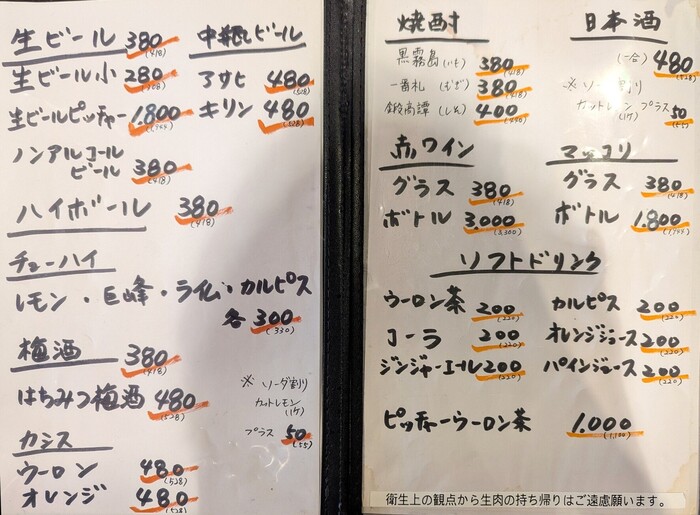 生ビール 380 (418)
生ビール小 280 (308)
生ビールピッチャー 1,800
ノンアルコール
ビール 380 (418)
中瓶ビール
アサヒ 480 (528)
キリン 480 (528)
ハイボール 380 (418)
チューハイ
レモン・巨峰・ライム・カルピス
各 300 (330)
梅酒 380 (418)
はちみつ梅酒 480 (528)
カシス
ウーロン 480 (528)
オレンジ 480 (528)
※ ソーダ割り
カットレモン
(1ケ)
プラス 50 (55)
焼酎
黒霧島 (いも) 380 (418)
一番札 (むぎ) 380 (418)
鍛高譚 (しそ) 400 (440)
日本酒
(一合) 480 (528)
※ ソーダ割り
カットレモン プラス 50 (55)
(1ケ)
赤ワイン
グラス 380 (418)
ボトル 3,000 (3,300)
マッコリ
グラス 380 (418)
ボトル 1,800
ソフトドリンク
ウーロン茶 200 (220)
コーラ 200 (220)
ジンジャーエール 200 (220)
カルピス 200 (220)
オレンジジュース 200 (220)
パインジュース 200 (220)
ピッチャーウーロン茶 1,000 (1,100)
衛生上の観点から生肉の持ち帰りはご遠慮願います。